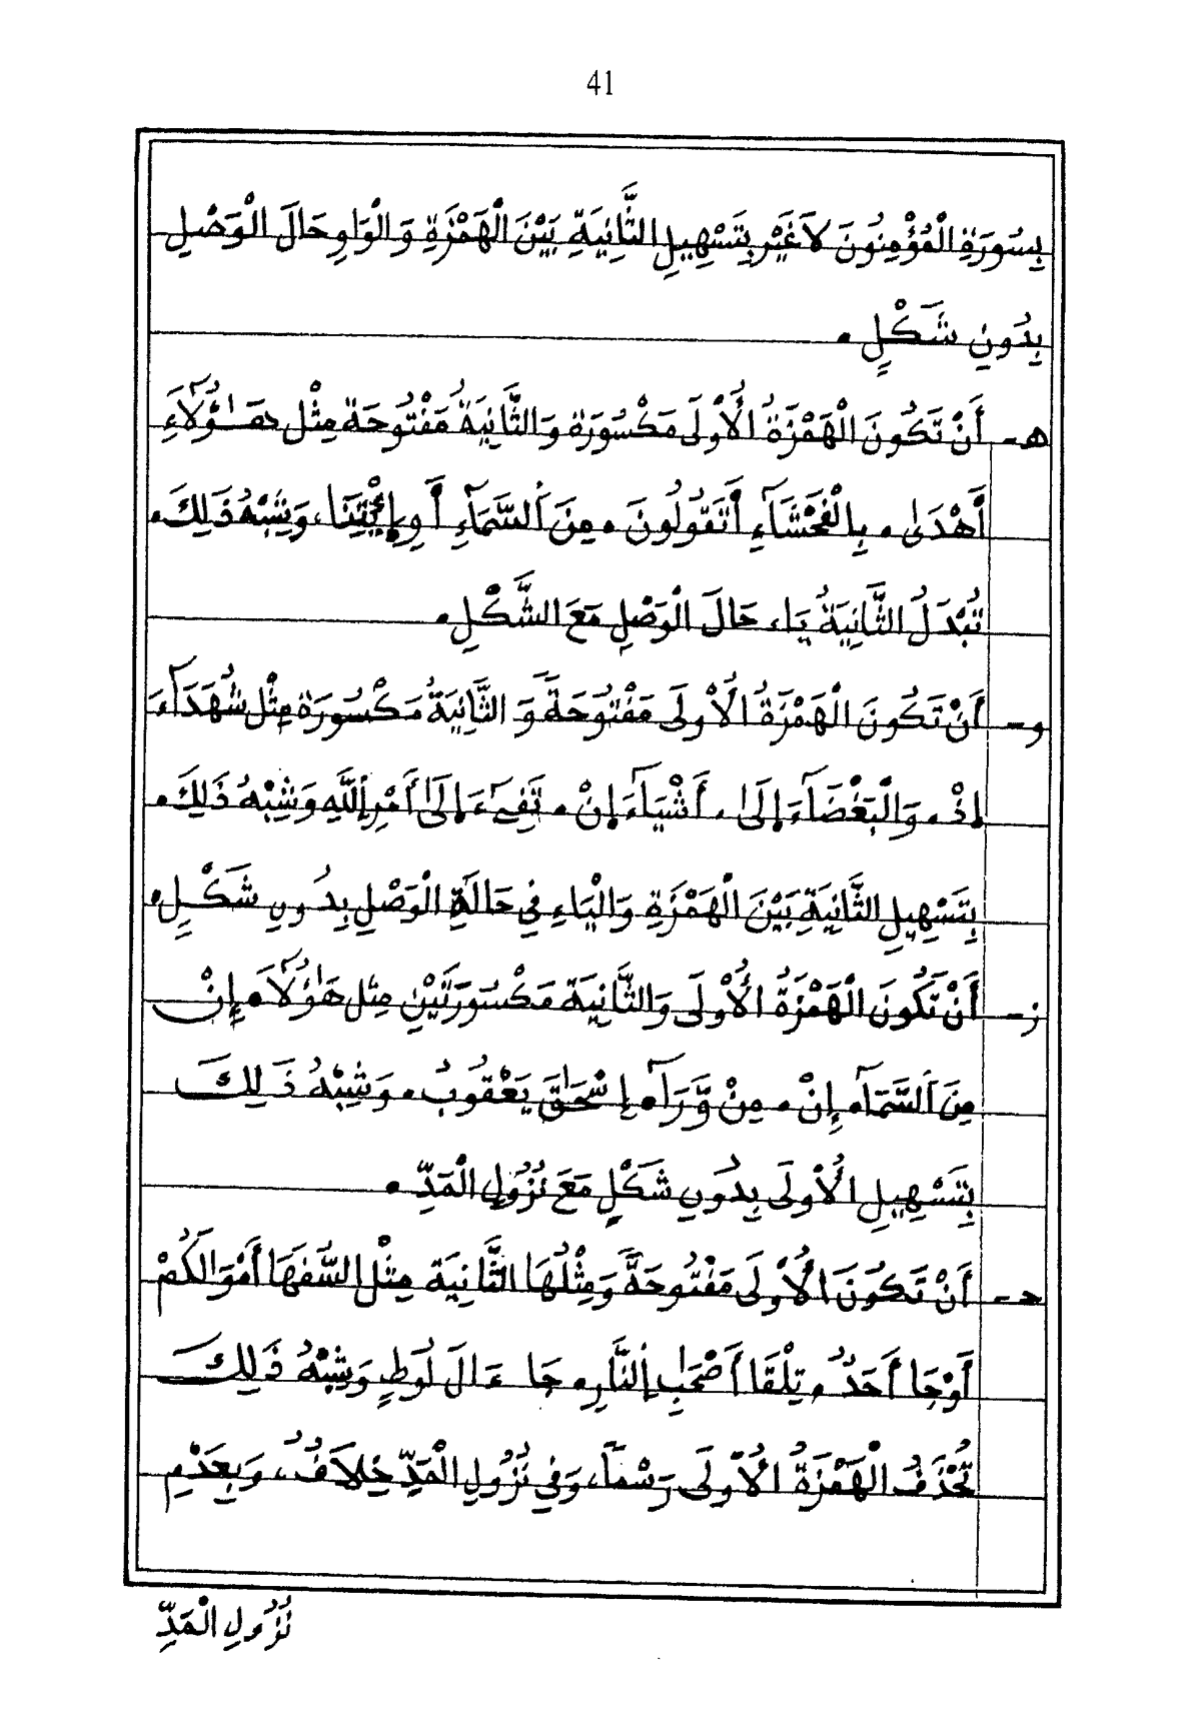 41
بِسُورَةِ الْمُؤْمِنُونَ لاَغَيْر بِتَسْهِيلِ الثَّانِيَةِ بَيْنَ الْهَمْزَةِ وَالْوَاوِ حَالَ الْوَصْلِ
بِدُونِ شَكْلٍ.
هـ- أَنْ تَكُونَ الْهَمْزَةُ الْأُوْلَى مَكْسُورَة وَالثَّانِيَةُ مَفْتُوحَة مِثْل هَـٰؤُلَآءِ
أَهْدَىٰ. بِالْفَحْشَآءِ أَتَقُولُونَ. مِنَ اَلسَّمَآءِ أَوِ إِئْتِنَا، وَشِبْهُ ذَلِكَ.
تُبْدَلُ الثَّانِيَةُ يَاء حَالَ الْوَصْلِ مَعَ الشَّكْلِ.
و- أَنْ تَكُونَ الْهَمْزَةُ الْأُوْلَى مَفْتُوحَةً وَ الثَّانِيَةُ مَكْسُورَة مِثْل شُهَدَآءَ
اِذْ. وَالْبَغْضَآءَ اِلَىٰ. أَشْيَآءَ اِنْ. تَفِيٓءَ اِلَىٰ أَمْرِ اِللَّهِ وَشِبْهُ ذَلِكَ.
بِتَسْهِيلِ الثَّانِيَةِ بَيْنَ الْهَمْزَةِ وَالْيَاءِ فِي حَالَةِ الْوَصْلِ بِدُونِ شَكْلٍ.
ز- أَنْ تَكُونَ الْهَمْزَةُ الْأُوْلَى وَالثَّانِيَة مَكْسُورَتَيْنِ مِثل هَٰؤُلَآ. إِنْ
مِنَ اَلسَّمَآ. إِنْ. مِنْ وَّرَآ. إِسْحَٰقَ يَعْقُوبُ. وَشِبْهُ ذَلِكَ
بِتَسْهِيلِ الْأُوْلَى بِدُونِ شَكْلٍ مَعَ نُزُولِ الْمَدِّ.
حـ- أَنْ تَكُونَ الْأُوْلَى مَفْتُوحَةً وَمِثْلُهَا الثَّانِيَة مِثْل السُّفَهَا أَمْوَالَكُمْ
أَوْجَا أَحَدٌ. تِلْقَا أَصْحَٰبِ اِلنَّارِ. جَا ءَالَ لُوطٍ وَشِبْهُ ذَلِكَ
تُحْذَفُ الْهَمْزَةُ الْأُوْلَى رَسْماً، وَفِي نُزُولِ الْمَدِّ خِلاَفٌ، وَبِعَدْمِ
نُزُولِ الْمَدِّ